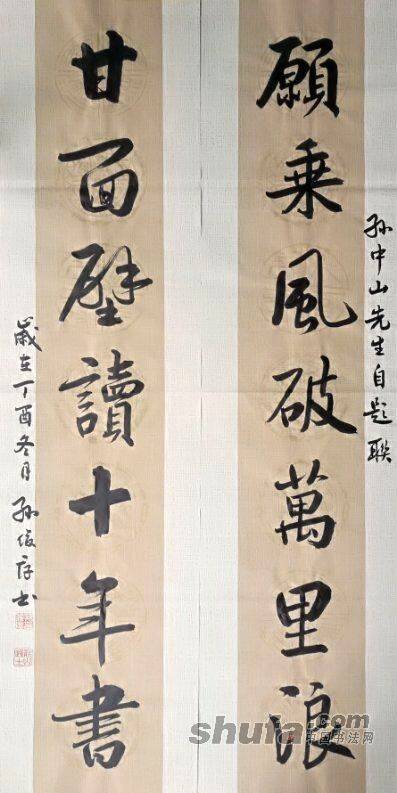 孙中山先生自题联
願乘風破萬里浪
甘面壁讀十年書
歲在丁酉冬月孙俊存书
shufa.com
中国书法网